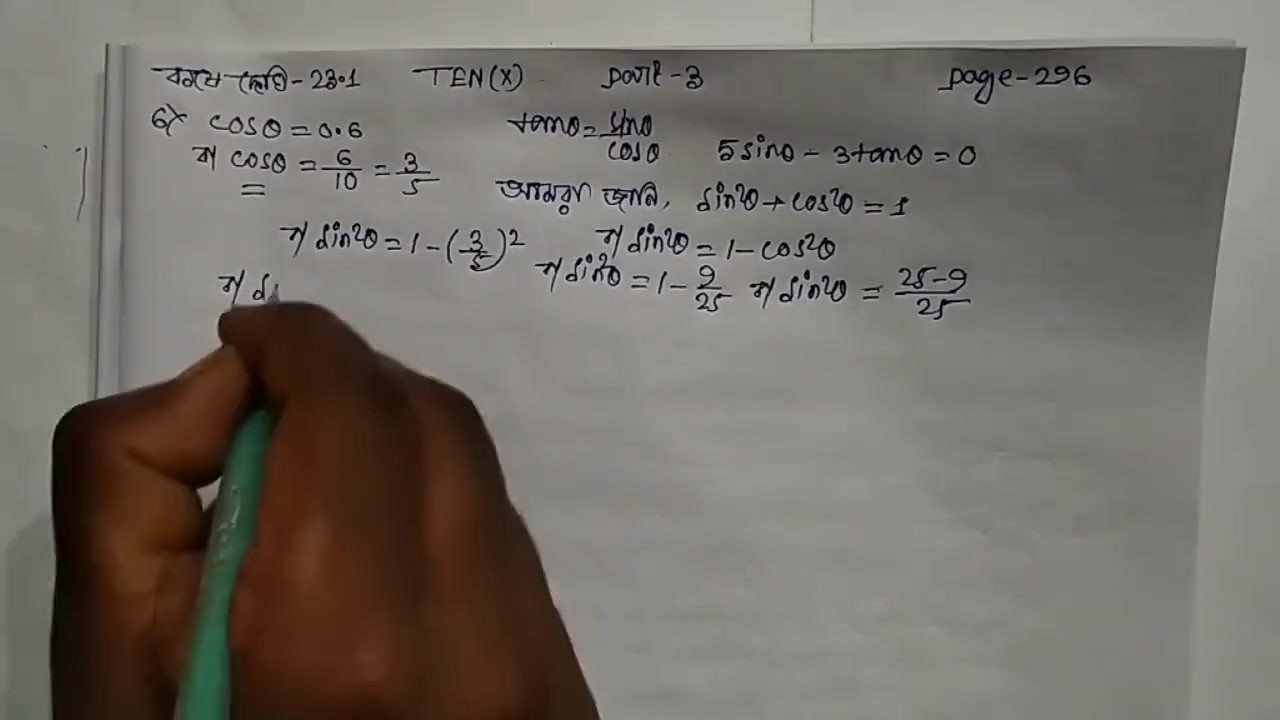 কষে দেখি-23.1 TEN(X) part-3 Page-296
6) cosθ = 0.6 tanθ = sinθ/cosθ 5sinθ - 3tanθ = 0
বা cosθ = 6/10 = 3/5 আমরা জানি, sin²θ + cos²θ = 1
বা sin²θ = 1 - (3/5)² বা sin²θ = 1 - cos²θ
বা si বা sin²θ = 1 - 9/25 বা sin²θ = 25-9/25